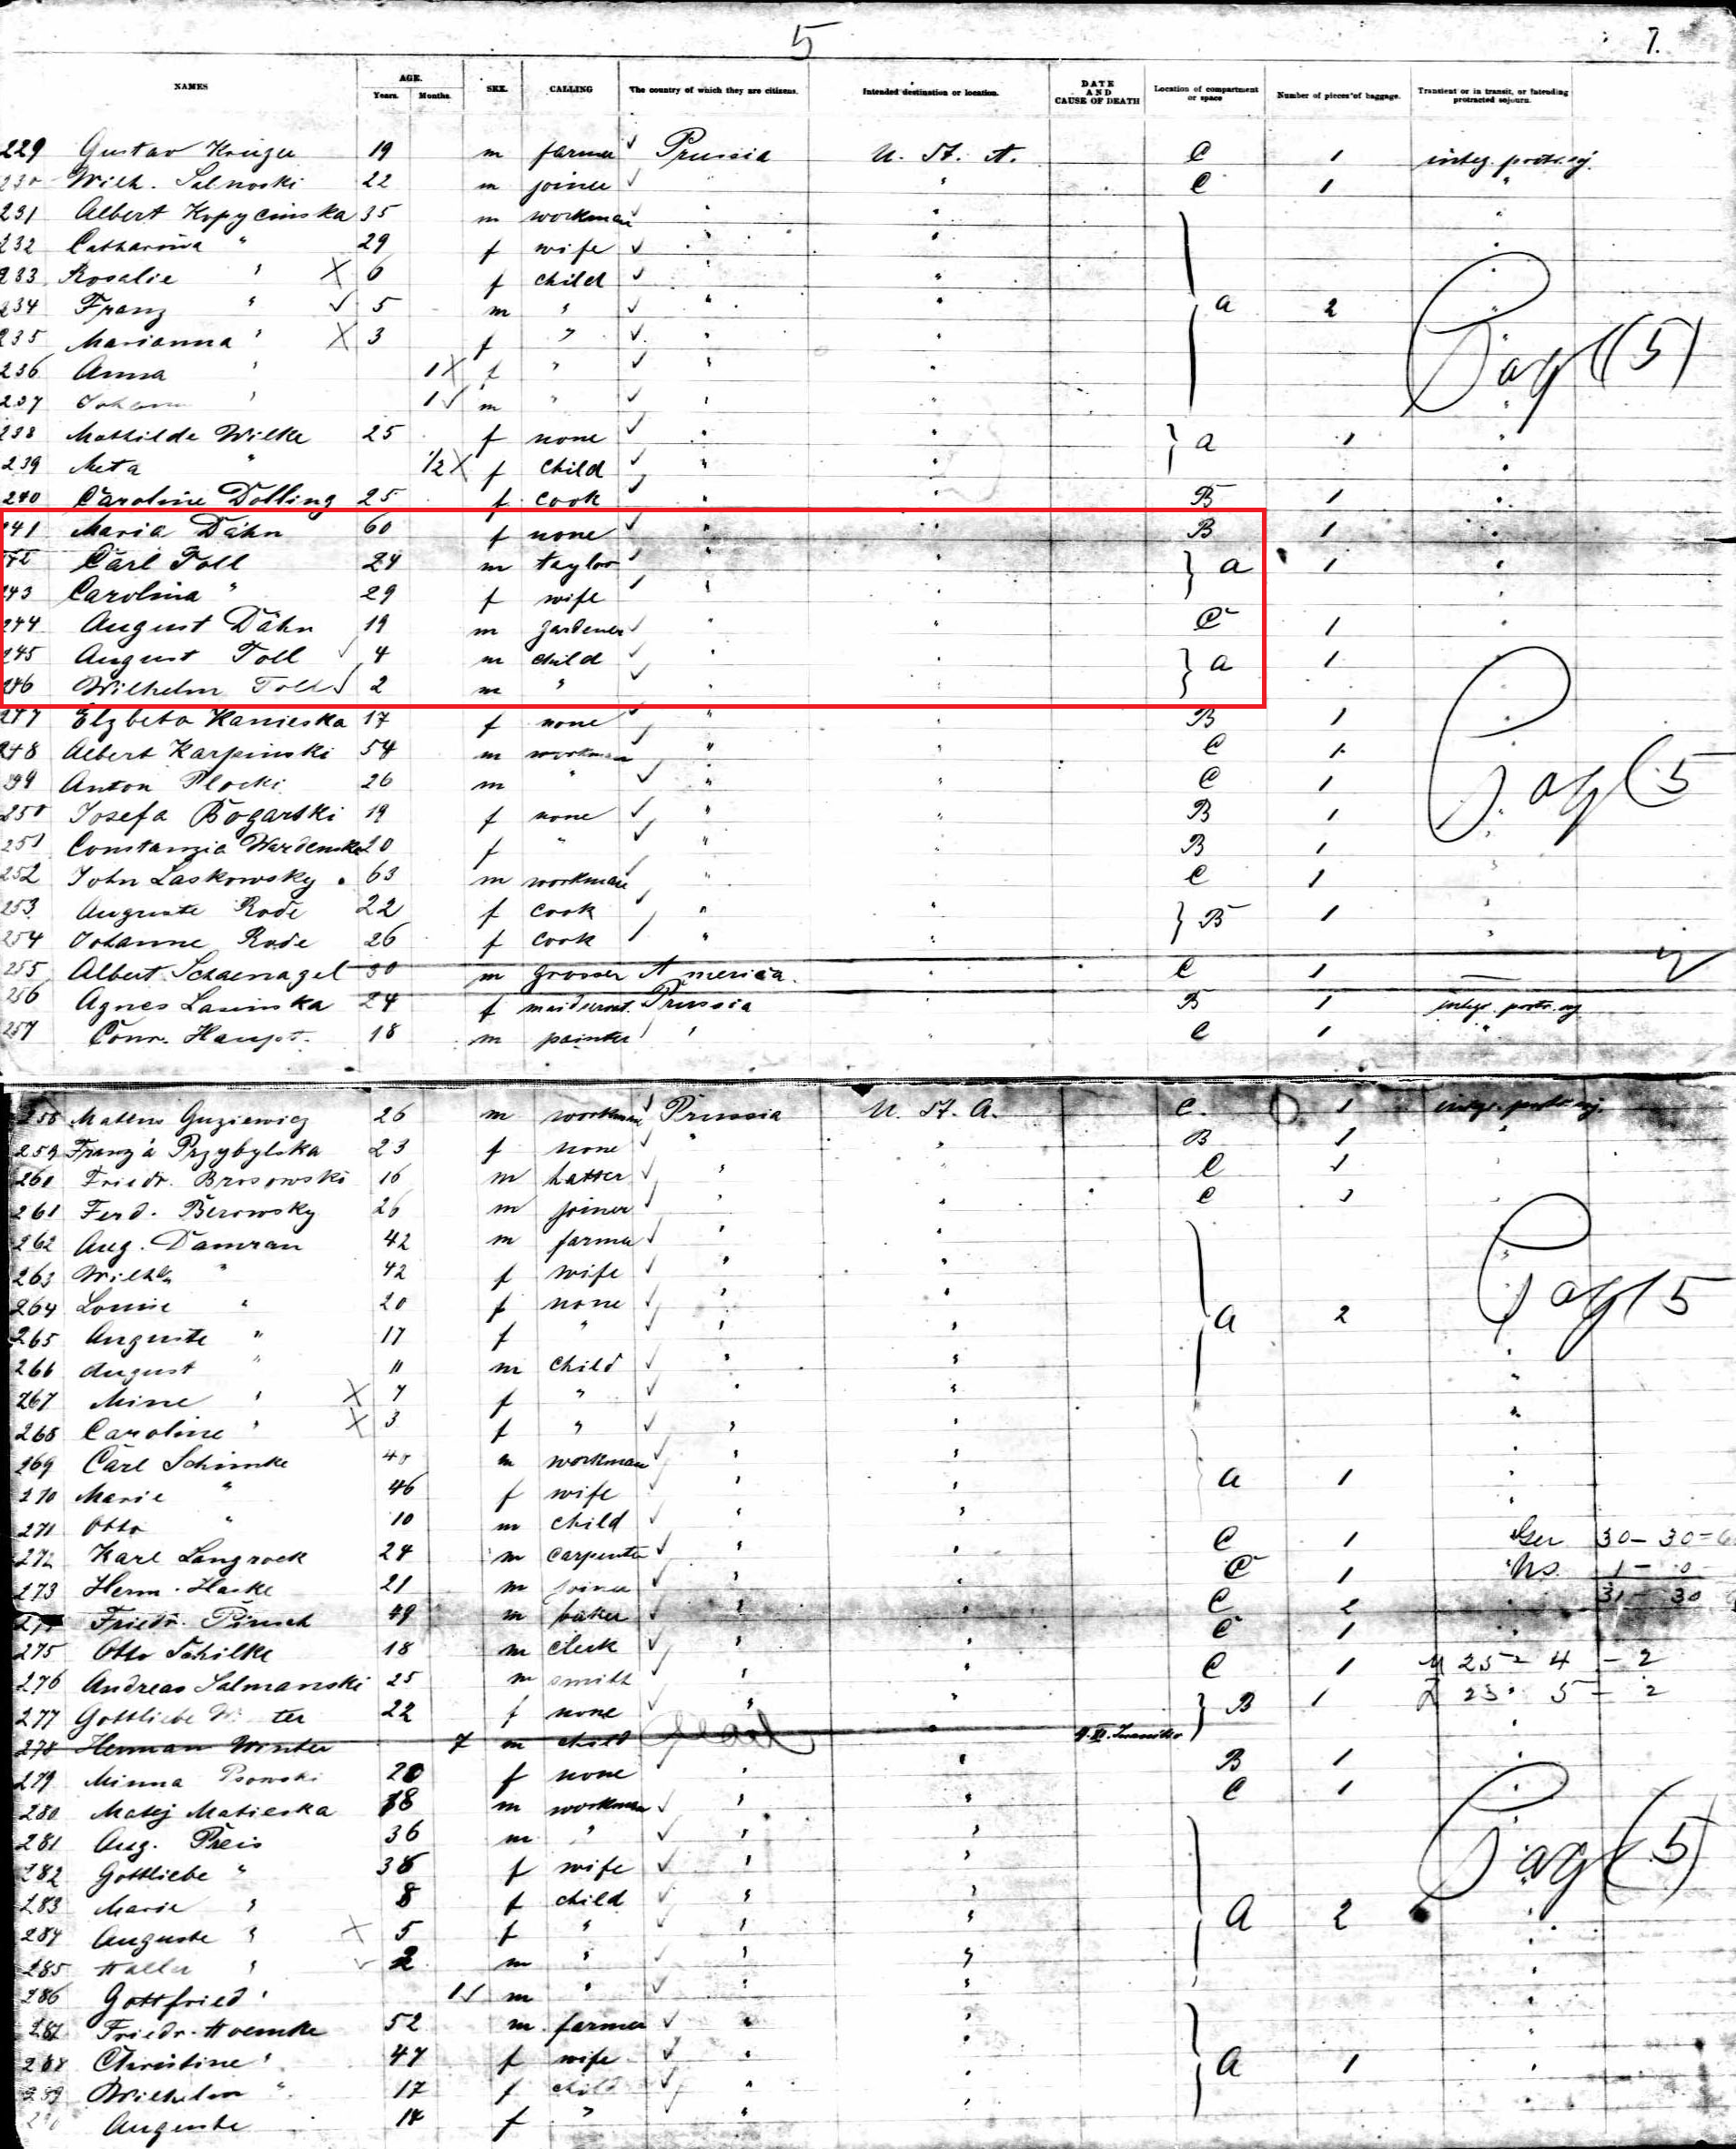 5 7.
NAMES AGE. Years. Months. SEX. CALLING The country of which they are citizens. Intended destination or location. DATE AND CAUSE OF DEATH Location of compartment or space Number of pieces of baggage. Transient or in transit, or intending protracted sojourn.
229 Gustav Krüger 19 m farmer ✓ Prussia U. St. A. C 1 integ. protr. soj.
230 Wilh. Salnoski 22 m joiner ✓ " " C 1 "
231 Albert Kopycinska 35 m workman ✓ " " "
232 Catharina " 29 f wife ✓ " " "
233 Rosalie " X 6 f child ✓ " " "
234 Franz " ✓ 5 m " ✓ " " a 2 "
235 Marianna " X 3 f " ✓ " " Pag (5)
236 Anna " 1 X f " ✓ " "
237 Johann " 1 ✓ m " ✓ " " "
238 Mathilde Wilke 25 f none ✓ " " } a 1 "
239 Meta " 1/2 X f child ✓ " " "
240 Caroline Dolling 25 f cook ✓ " " B 1 "
241 Maria Dähn 60 f none ✓ " " B 1 "
242 Carl Toll 24 m taylor ✓ " " } a 1 "
243 Carolina " 29 f wife " " "
244 August Dähn 19 m gardener ✓ " " C 1 "
245 August Toll ✓ 4 m child ✓ " " } a 1 "
246 Wilhelm Toll ✓ 2 m " ✓ " "
247 Elzbeta Kanieska 17 f none ✓ " " B 1 "
248 Albert Karpinski 54 m workman " " C 1
249 Anton Plocki 26 m " ✓ " " C 1 Pag (5
250 Josefa Bogarski 19 f none ✓ " " B 1
251 Constanzia Wardenska 20 f " ✓ " " B 1 "
252 John Laskowsky 63 m workman " " C 1 "
253 Auguste Rode 22 f cook " " } B 1 "
254 Johanne Rode 26 f cook " " "
255 Albert Schaenagel 30 m grosser America. " C 1 —
256 Agnes Lasinska 24 f maidservt. Prussia " B 1 integ. protr. soj
257 Conr. Haupt. 18 m painter " " C 1 "
258 Guziewicz 26 m workman ✓ Prussia U. St. A. C. 1 integ. protr. soj.
259 Franz'a Przybylska 23 f none ✓ " " B 1 "
260 Friedr. Brosowski 16 m hatter ✓ " " C 1 "
261 Ferd. Berowsky 26 m joiner ✓ " " C 1
262 Aug. Damrau 42 m farmer ✓ " "
263 Wilh. " 42 f wife ✓ " " "
264 Louise " 20 f none ✓ " " a 2 Pag (5
265 Auguste " 17 f " ✓ " "
266 August " 11 m child ✓ " " "
267 Mine " X 7 f " ✓ " " "
268 Caroline " X 3 f " ✓ " " "
269 Carl Schimke 40 m workman ✓ " " "
270 Marie " 46 f wife ✓ " " a 1 "
271 Otto " 10 m child ✓ " " "
272 Karl Langrock 24 m carpenter ✓ " " C 1 Ger 30 - 30 = 6
273 Herm. Haske 21 m joiner ✓ " " C 1 Us. 1 - 0
274 Friedr. Pirsch 49 m baker ✓ " " C 2 " 31 - 30
275 Otto Schilke 18 m clerk ✓ " " C 1 "
276 Andreas Salmanski 25 m smith ✓ " " C 1 M 25 - 4 - 2
277 Gottliebe Winter 22 f none ✓ " " } B 1 23 5 - 2
278 Herman Winter 7 m child dead " "
279 Minna Psowski 20 f none ✓ " " B 1 "
280 Matij Matieska 18 m workman ✓ " " C 1 "
281 Aug. Preis 36 m " ✓ " "
282 Gottliebe " 36 f wife ✓ " " Pag (5)
283 Marie " 8 f child ✓ " "
284 Auguste " X 5 f " ✓ " " a 2 "
285 " ✓ 2 m " ✓ " " "
286 Gottfried " 1 ✓ m " ✓ " " "
287 Friedr. Hoemke 52 m farmer ✓ " " "
288 Christine " 47 f wife ✓ " " a 1 "
289 Wilhelm " 17 f child ✓ " " "
290 Auguste 14 f " " " "